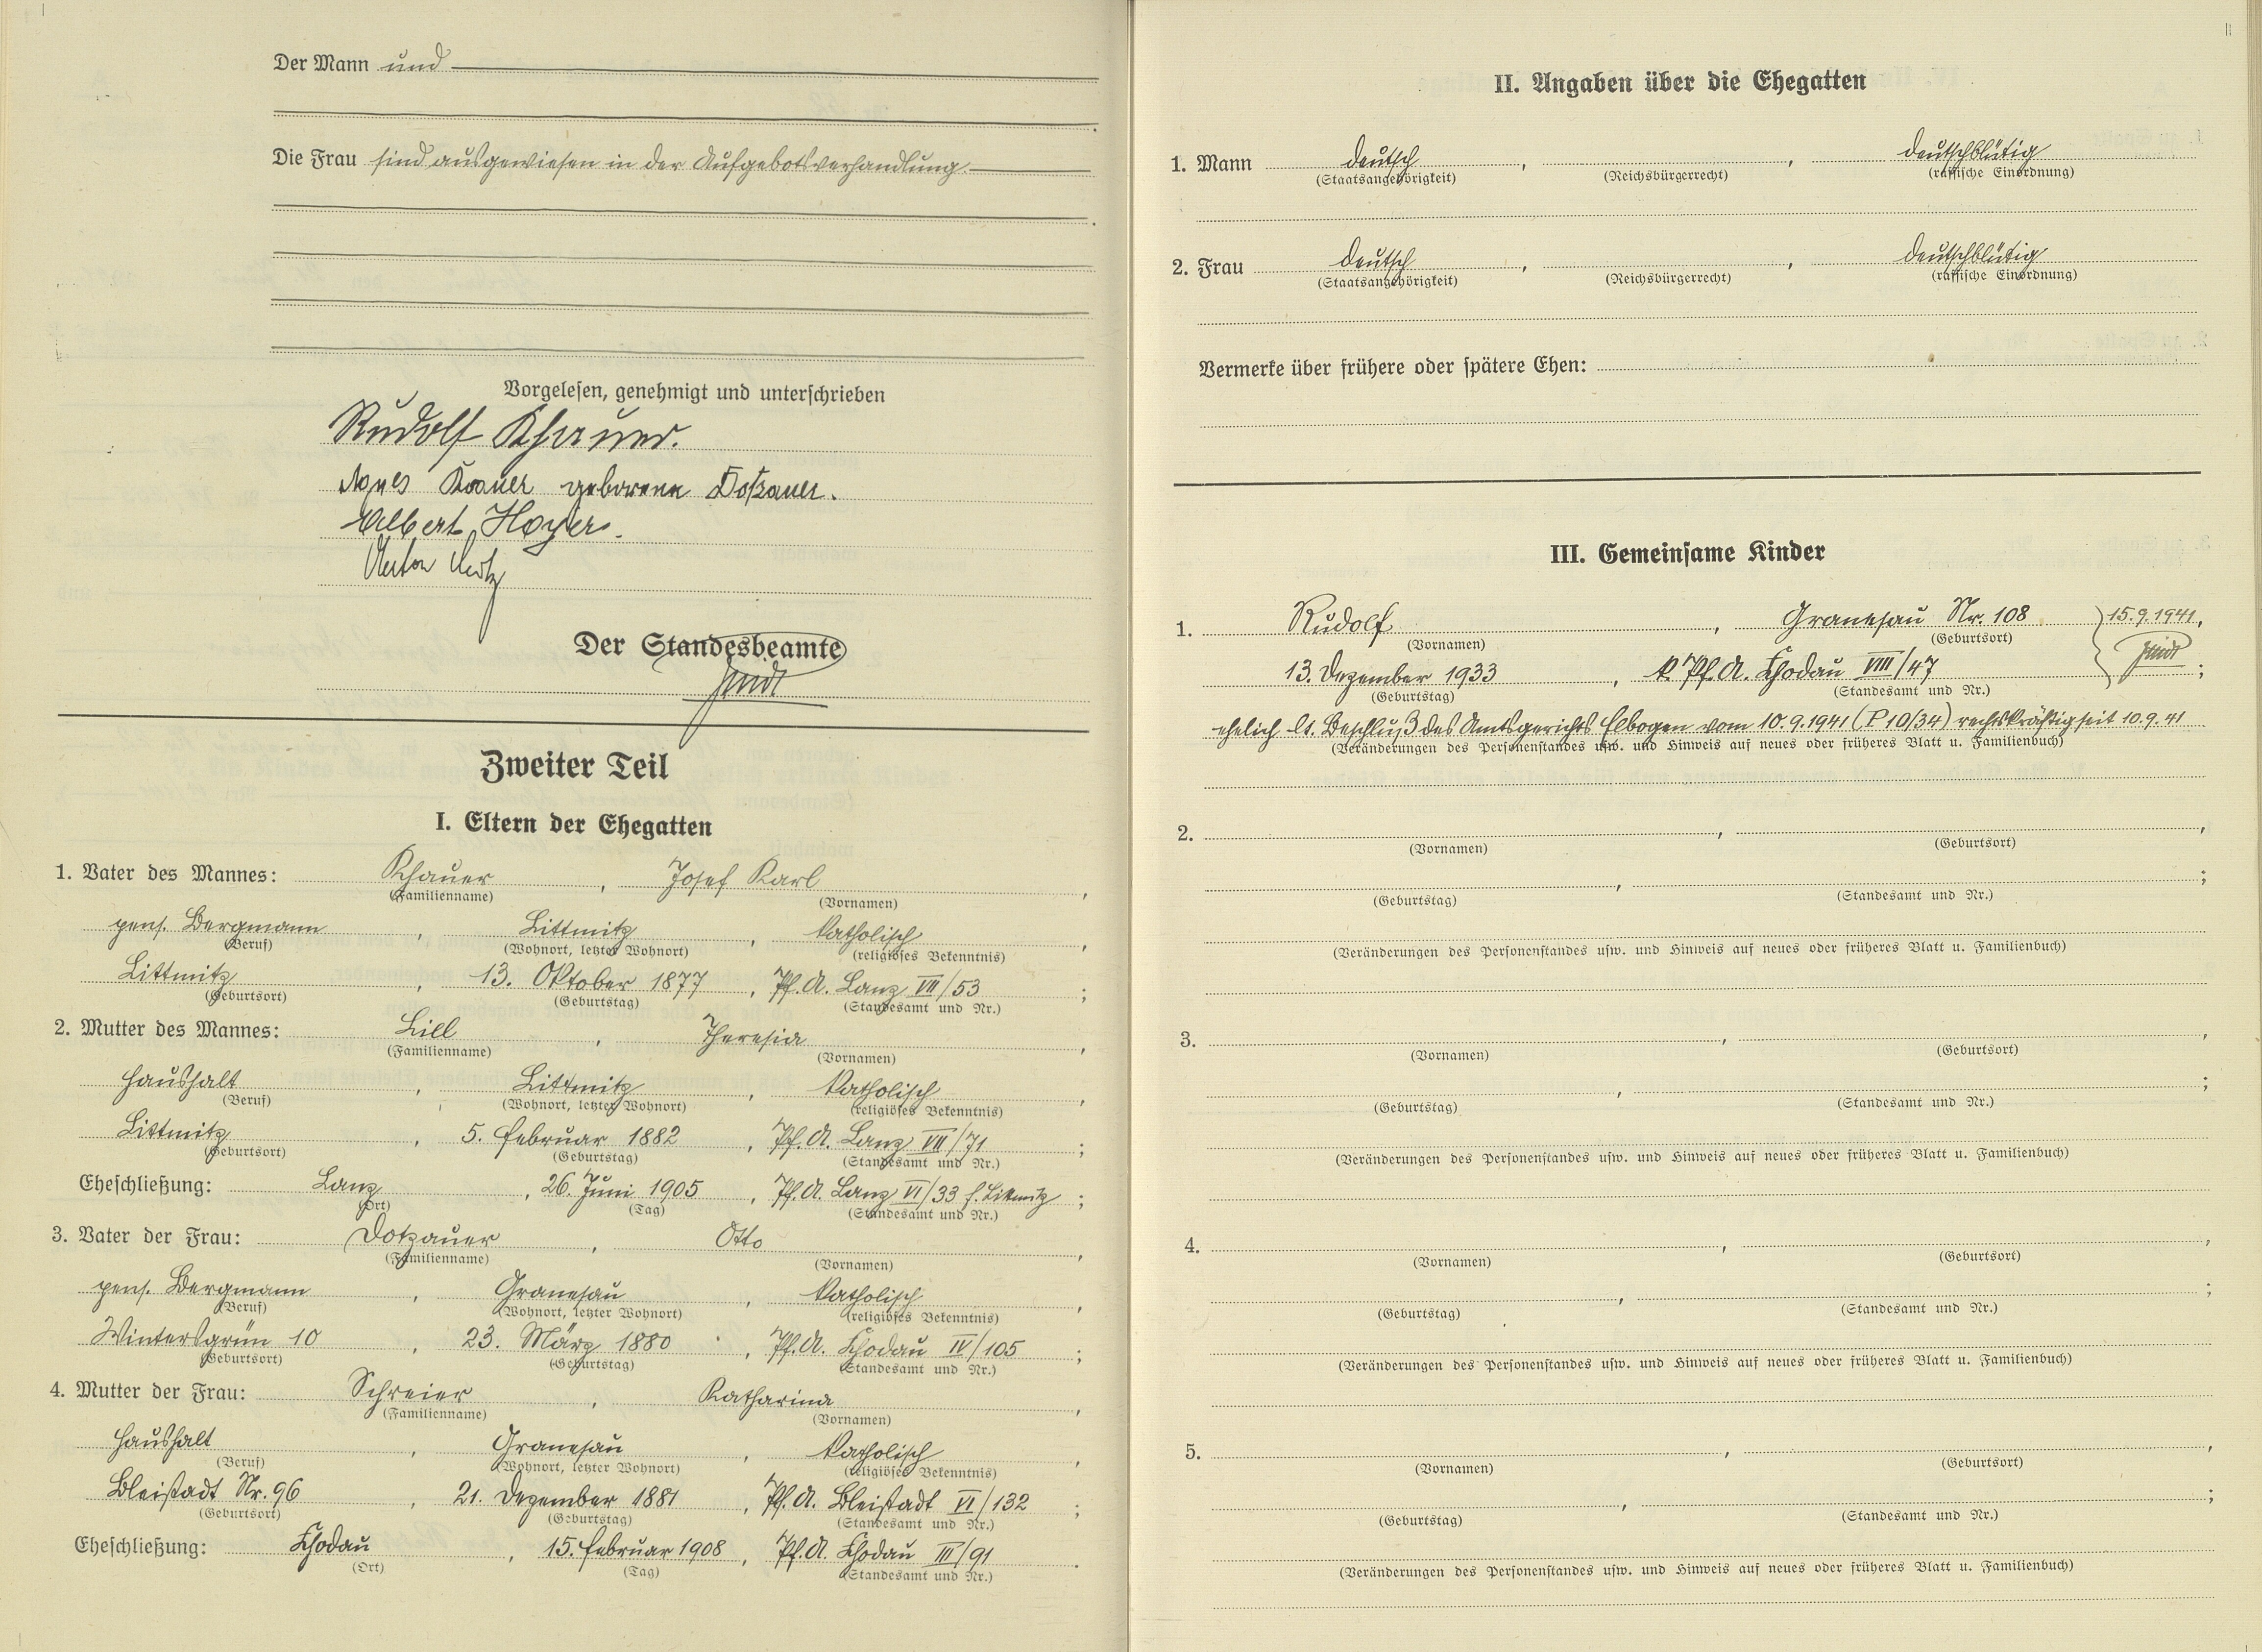 Der Mann und
Die Frau sind ausgewiesen in der Aufgebotsverhandlung.
Vorgelesen, genehmigt und unterschrieben
Rudolf Khauer.
Agnes Koauer geborene Dotzauer.
Albert Hoyer.
Anton
Der Standesbeamte
Zweiter Teil
I. Eltern der Ehegatten
1. Vater des Mannes: Khauer, Josef Karl,
(Familienname) (Vornamen)
pens. Bergmann, Littmitz, katholisch,
(Beruf) (Wohnort, letzter Wohnort) (religiöses Bekenntnis)
Littmitz, 13. Oktober 1877, Pf. A. Lanz VII/53;
(Geburtsort) (Geburtstag) (Standesamt und Nr.)
2. Mutter des Mannes: Lill, Theresia,
(Familienname) (Vornamen)
Haushalt, Littmitz, katholisch,
(Beruf) (Wohnort, letzter Wohnort) (religiöses Bekenntnis)
Littmitz, 5. Februar 1882, Pf. A. Lanz VII/71;
(Geburtsort) (Geburtstag) (Standesamt und Nr.)
Eheschließung: Lanz, 26. Juni 1905, Pf. A. Lanz VI/33 f. Littmitz;
(Ort) (Tag) (Standesamt und Nr.)
3. Vater der Frau: Dotzauer, Otto,
(Familienname) (Vornamen)
pens. Bergmann, Granesau, katholisch,
(Beruf) (Wohnort, letzter Wohnort) (religiöses Bekenntnis)
Wintersgrün 10, 23. März 1880, Pf. A. Chodau IV/105;
(Geburtsort) (Geburtstag) (Standesamt und Nr.)
4. Mutter der Frau: Schreier, Katharina,
(Familienname) (Vornamen)
Haushalt, Granesau, katholisch,
(Beruf) (Wohnort, letzter Wohnort) (religiöses Bekenntnis)
Bleistadt Nr. 96, 21. Dezember 1881, Pf. A. Bleistadt VI/132;
(Geburtsort) (Geburtstag) (Standesamt und Nr.)
Eheschließung: Chodau, 15. Februar 1908, Pf. A. Chodau III/91.
(Ort) (Tag) (Standesamt und Nr.)
II. Angaben über die Ehegatten
1. Mann deutsch, , deutschblütig
(Staatsangehörigkeit) (Reichsbürgerrecht) (rassische Einordnung)
2. Frau deutsch, , deutschblütig
(Staatsangehörigkeit) (Reichsbürgerrecht) (rassische Einordnung)
Vermerke über frühere oder spätere Ehen:
III. Gemeinsame Kinder
1. Rudolf, Granesau Nr. 108 15.9.1941,
(Vornamen) (Geburtsort)
13. Dezember 1933, k. Pf. A. Chodau VIII/47;
(Geburtstag) (Standesamt und Nr.)
ehelich lt. Beschluß des Amtsgerichts Elbogen vom 10.9.1941 (P 10/34) rechtskräftig seit 10.9.41
(Veränderungen des Personenstandes usw. und Hinweis auf neues oder früheres Blatt u. Familienbuch)
2. , ,
(Vornamen) (Geburtsort)
, ;
(Geburtstag) (Standesamt und Nr.)
(Veränderungen des Personenstandes usw. und Hinweis auf neues oder früheres Blatt u. Familienbuch)
3. , ,
(Vornamen) (Geburtsort)
, ;
(Geburtstag) (Standesamt und Nr.)
(Veränderungen des Personenstandes usw. und Hinweis auf neues oder früheres Blatt u. Familienbuch)
4. , ,
(Vornamen) (Geburtsort)
, ;
(Geburtstag) (Standesamt und Nr.)
(Veränderungen des Personenstandes usw. und Hinweis auf neues oder früheres Blatt u. Familienbuch)
5. , ,
(Vornamen) (Geburtsort)
, ;
(Geburtstag) (Standesamt und Nr.)
(Veränderungen des Personenstandes usw. und Hinweis auf neues oder früheres Blatt u. Familienbuch)